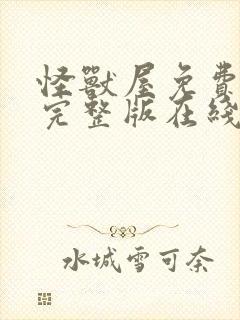 怪獸屋免費
完整版在綫
水城雪可奈